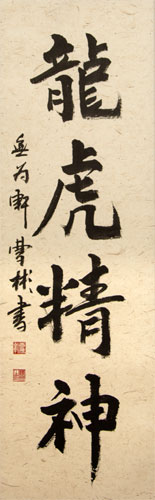 龍虎精神
無為軒曹彬書